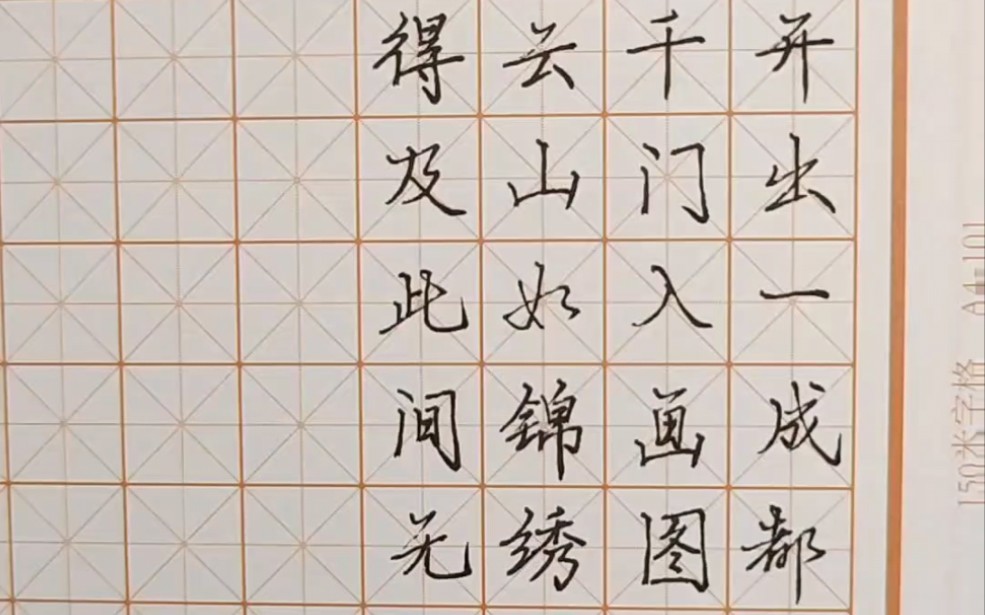 开出一成都
千门入画图
云山如锦绣
得及此间无
150米字格 A4-101